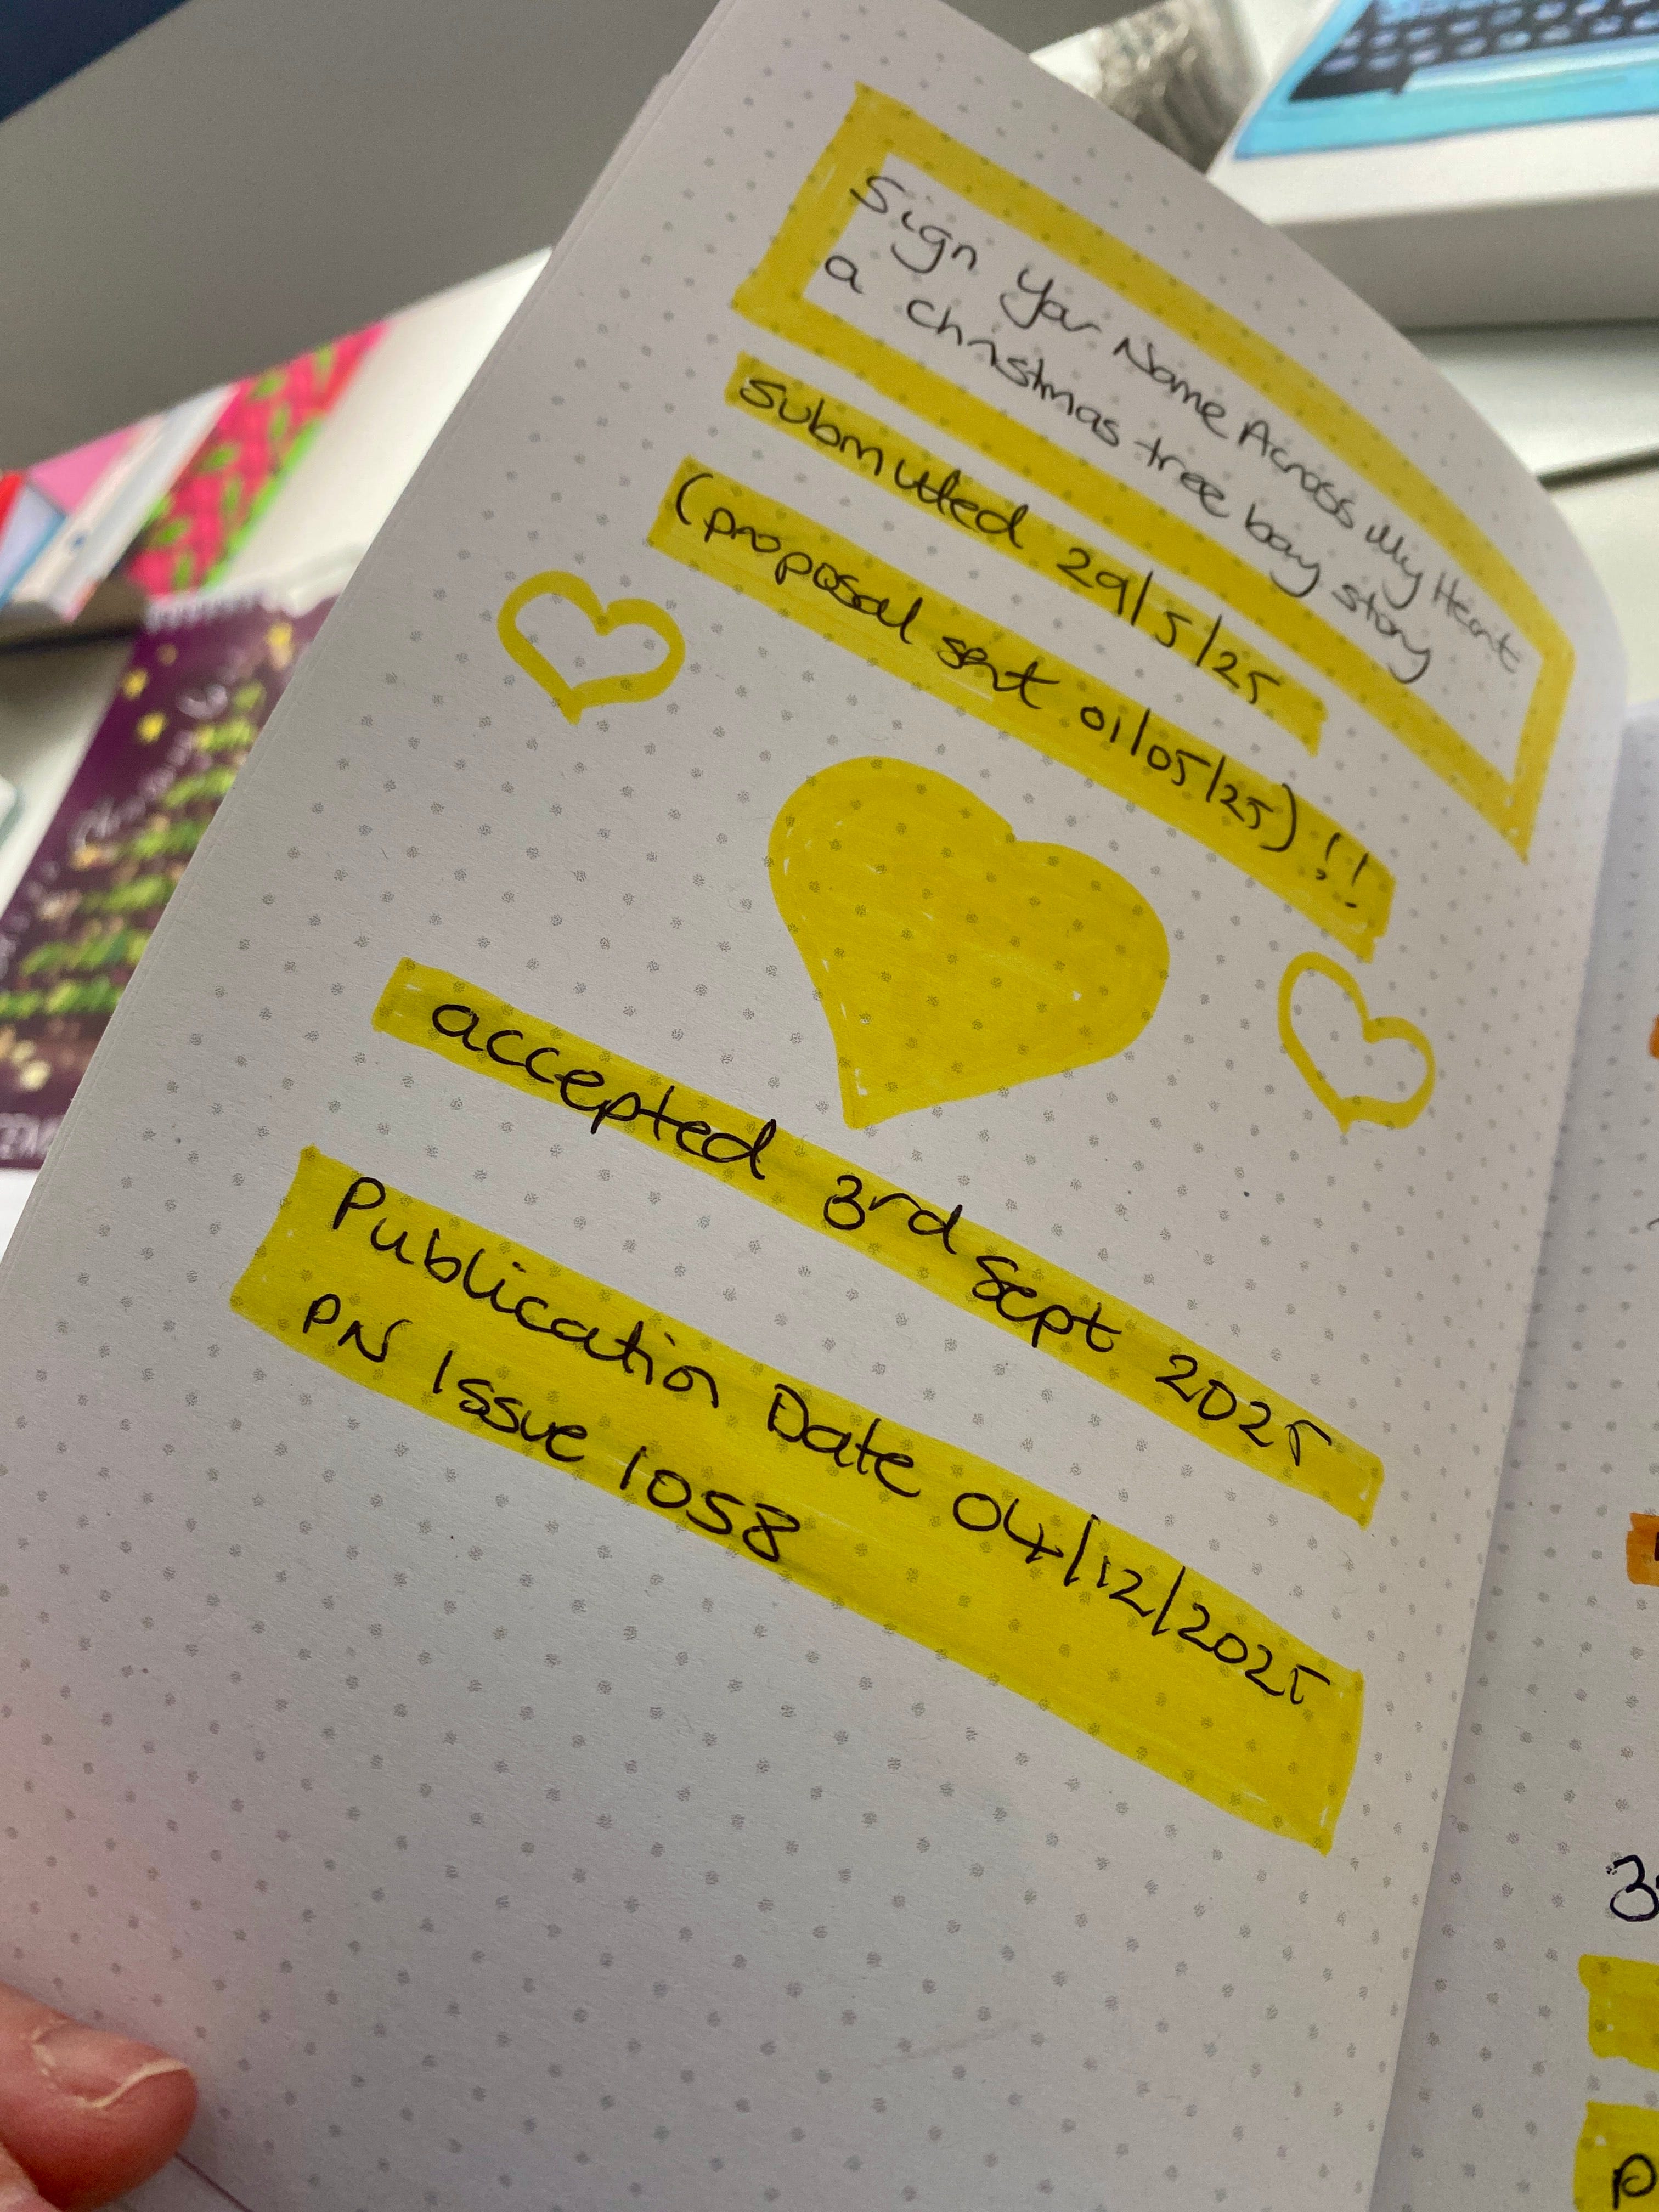 Sign Your Name Across My Heart
a christmas tree bay story
submitted 29/5/25
(proposal sent 01/05/25)!!
accepted 3rd sept 2025
Publication Date 04/12/2025
PN Issue 1058